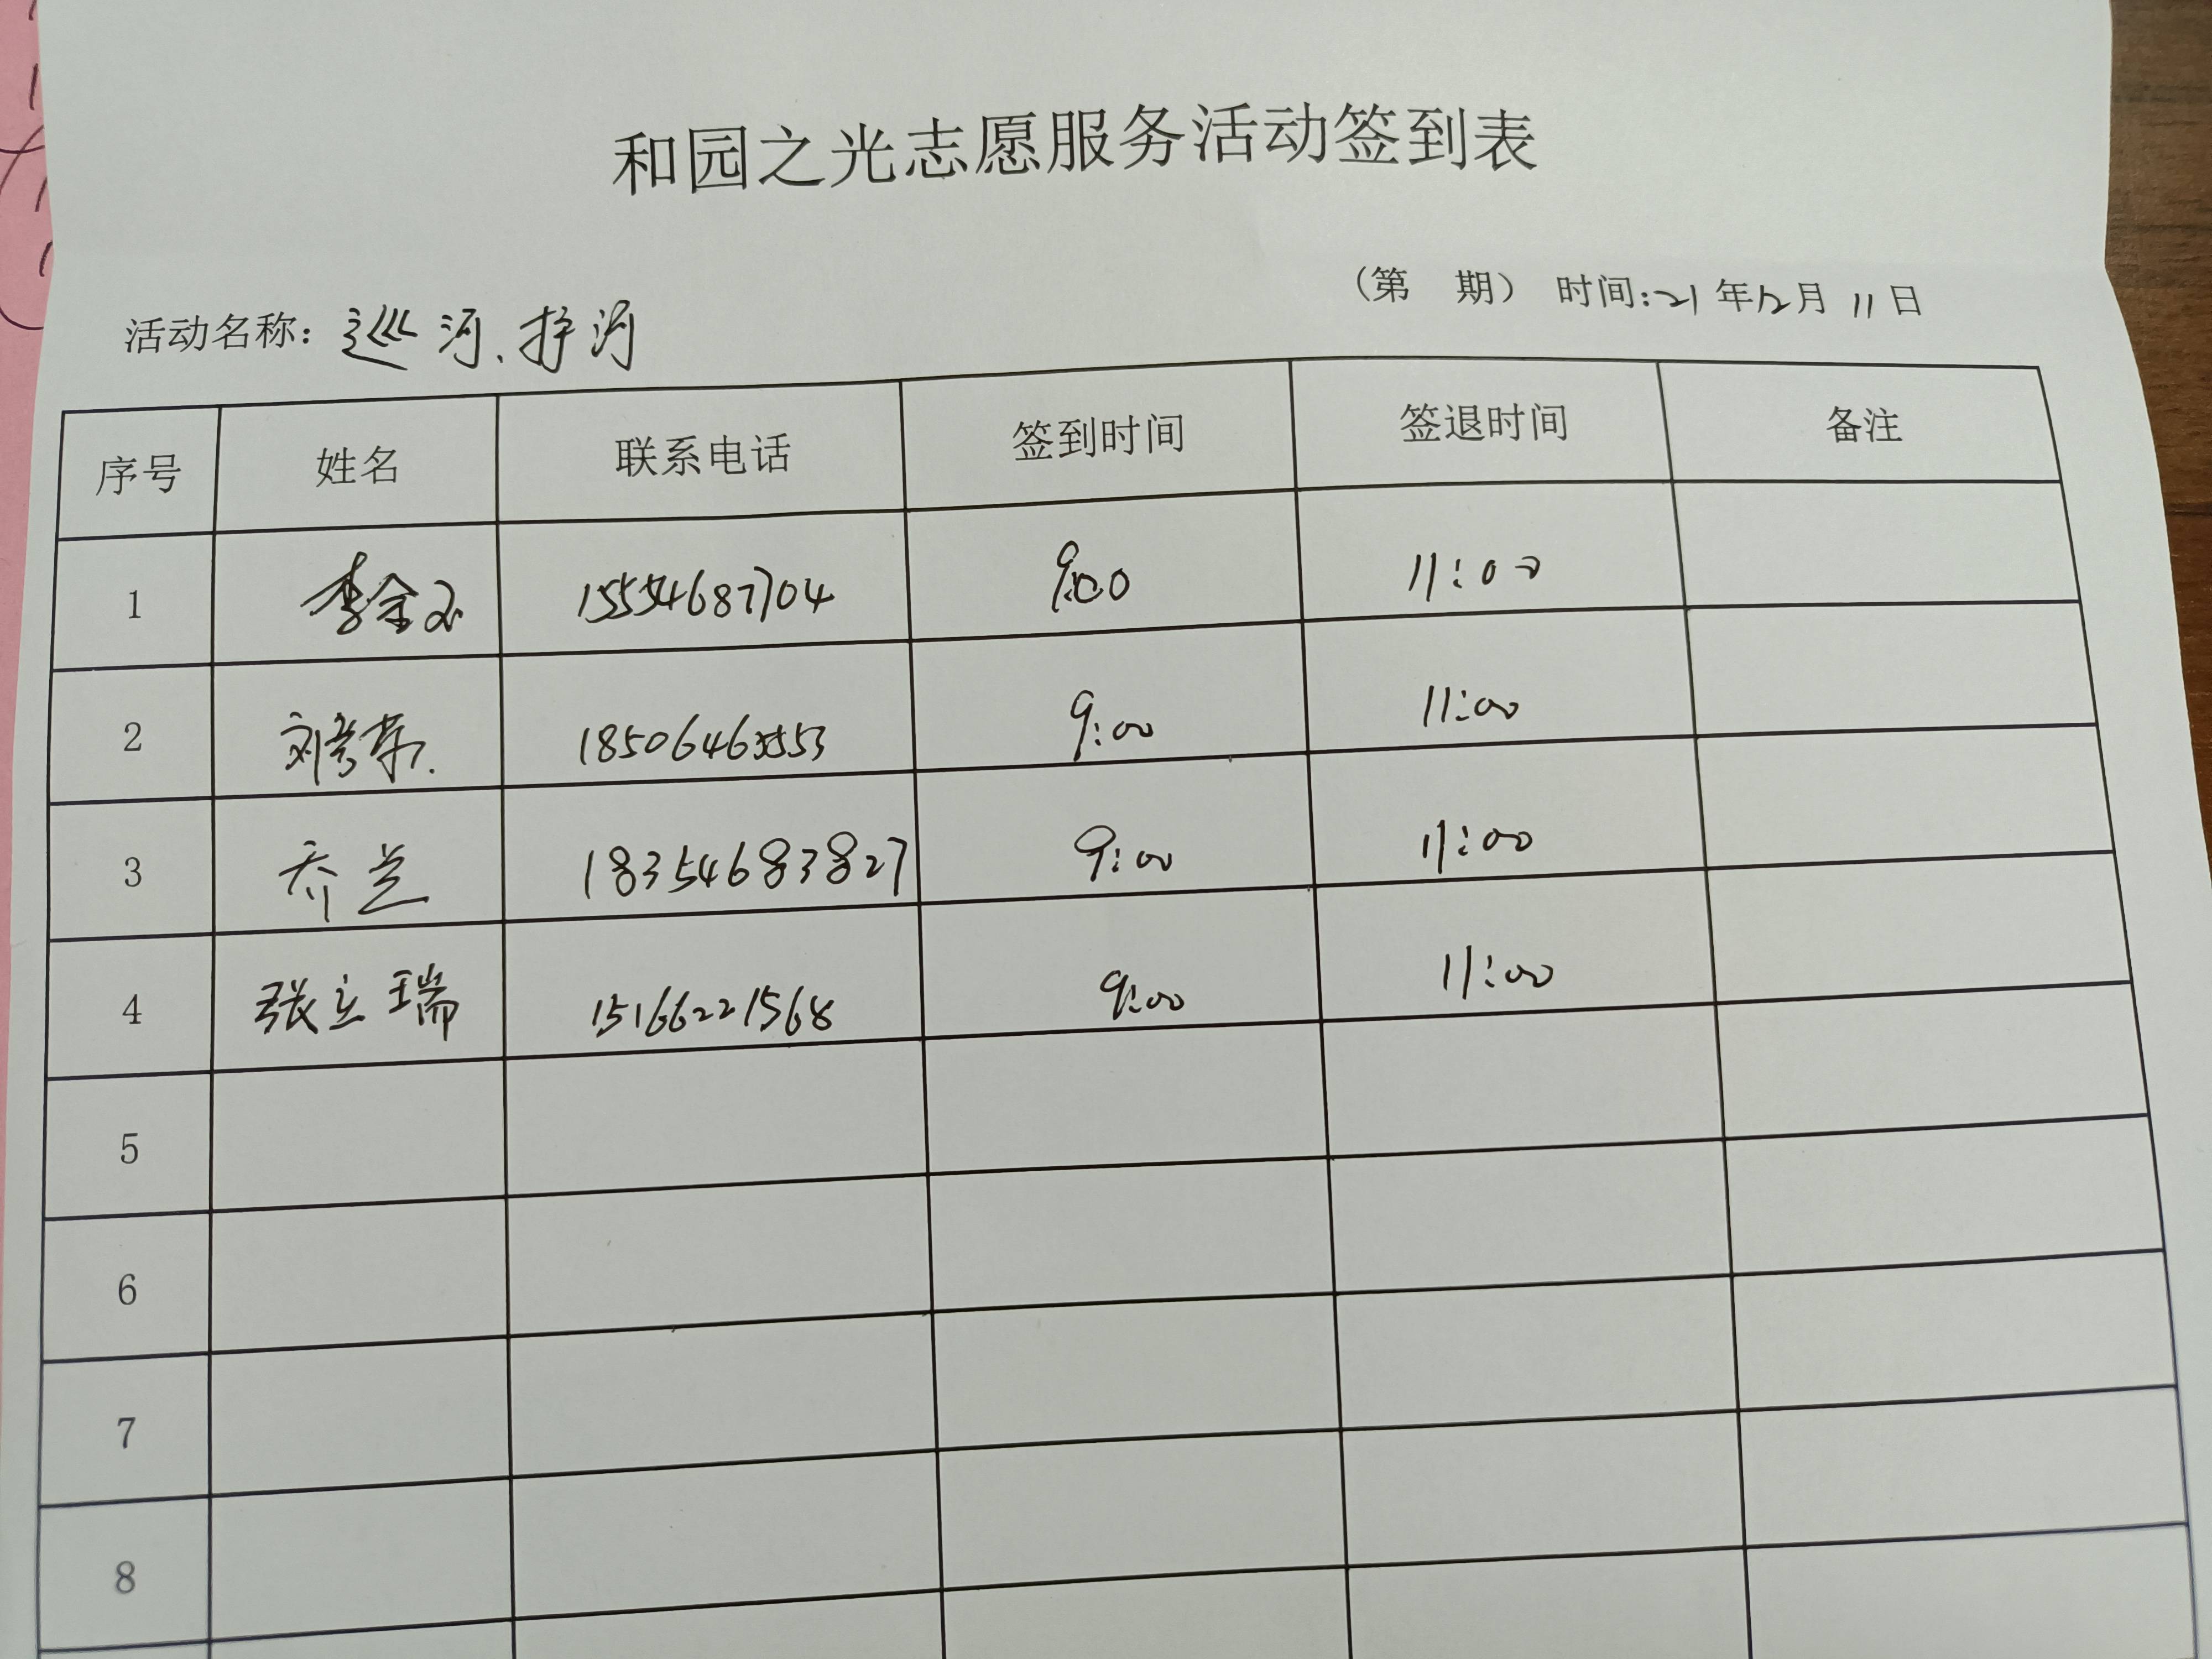 和园之光志愿服务活动签到表
（第 期） 时间:21年12月11日
活动名称：巡河、护河
序号 姓名 联系电话 签到时间 签退时间 备注
1 李金玉 15554687704 9:00 11:00
2 刘秀荣 9:00 11:00
3 乔兰 18354683827 9:00 11:00
4 张立瑞 15166221568 9:00 11:00
5
6
7
8